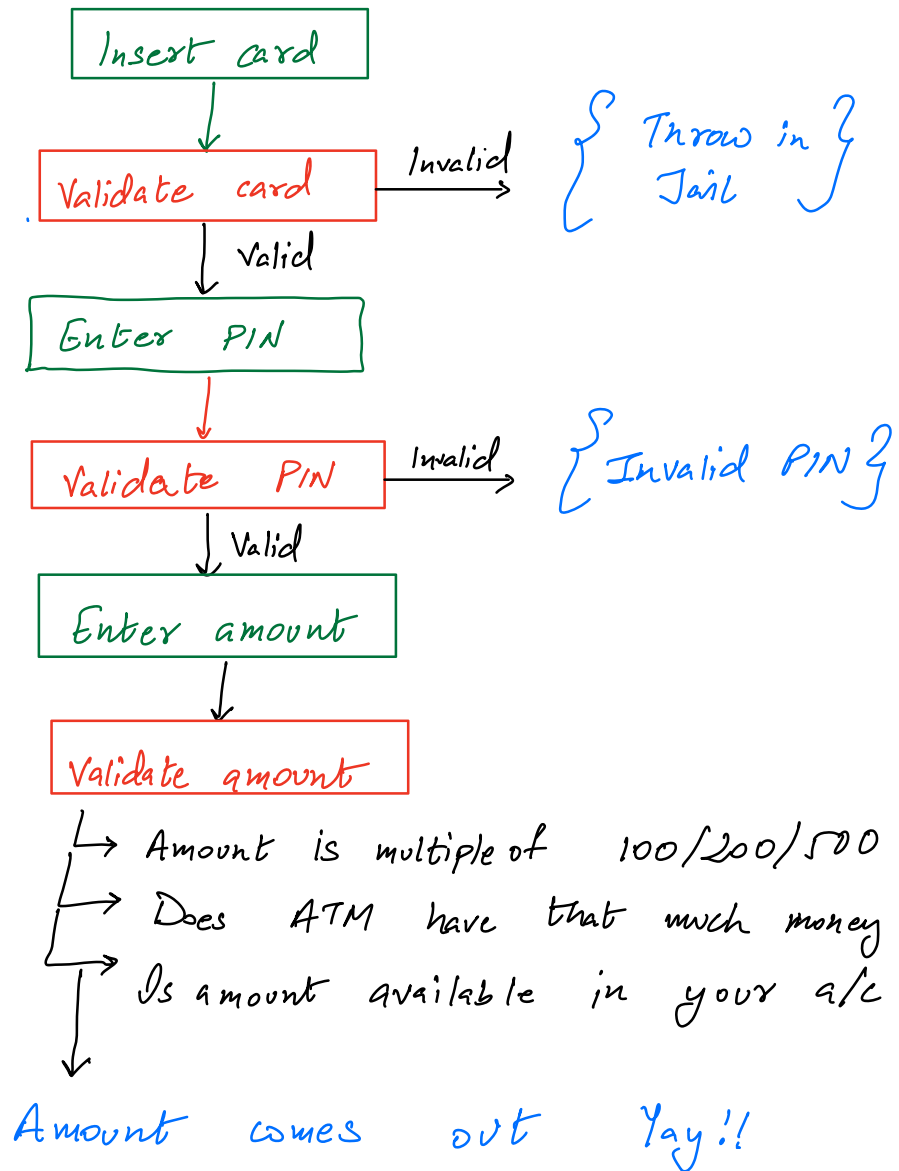 Insert card
Validate card
Invalid
{ Throw in
Jail }
Valid
Enter PIN
Validate PIN
Invalid
{ Invalid PIN }
Valid
Enter amount
Validate amount
Amount is multiple of 100/200/500
Does ATM have that much money
Is amount available in your a/c
Amount comes out Yay!!